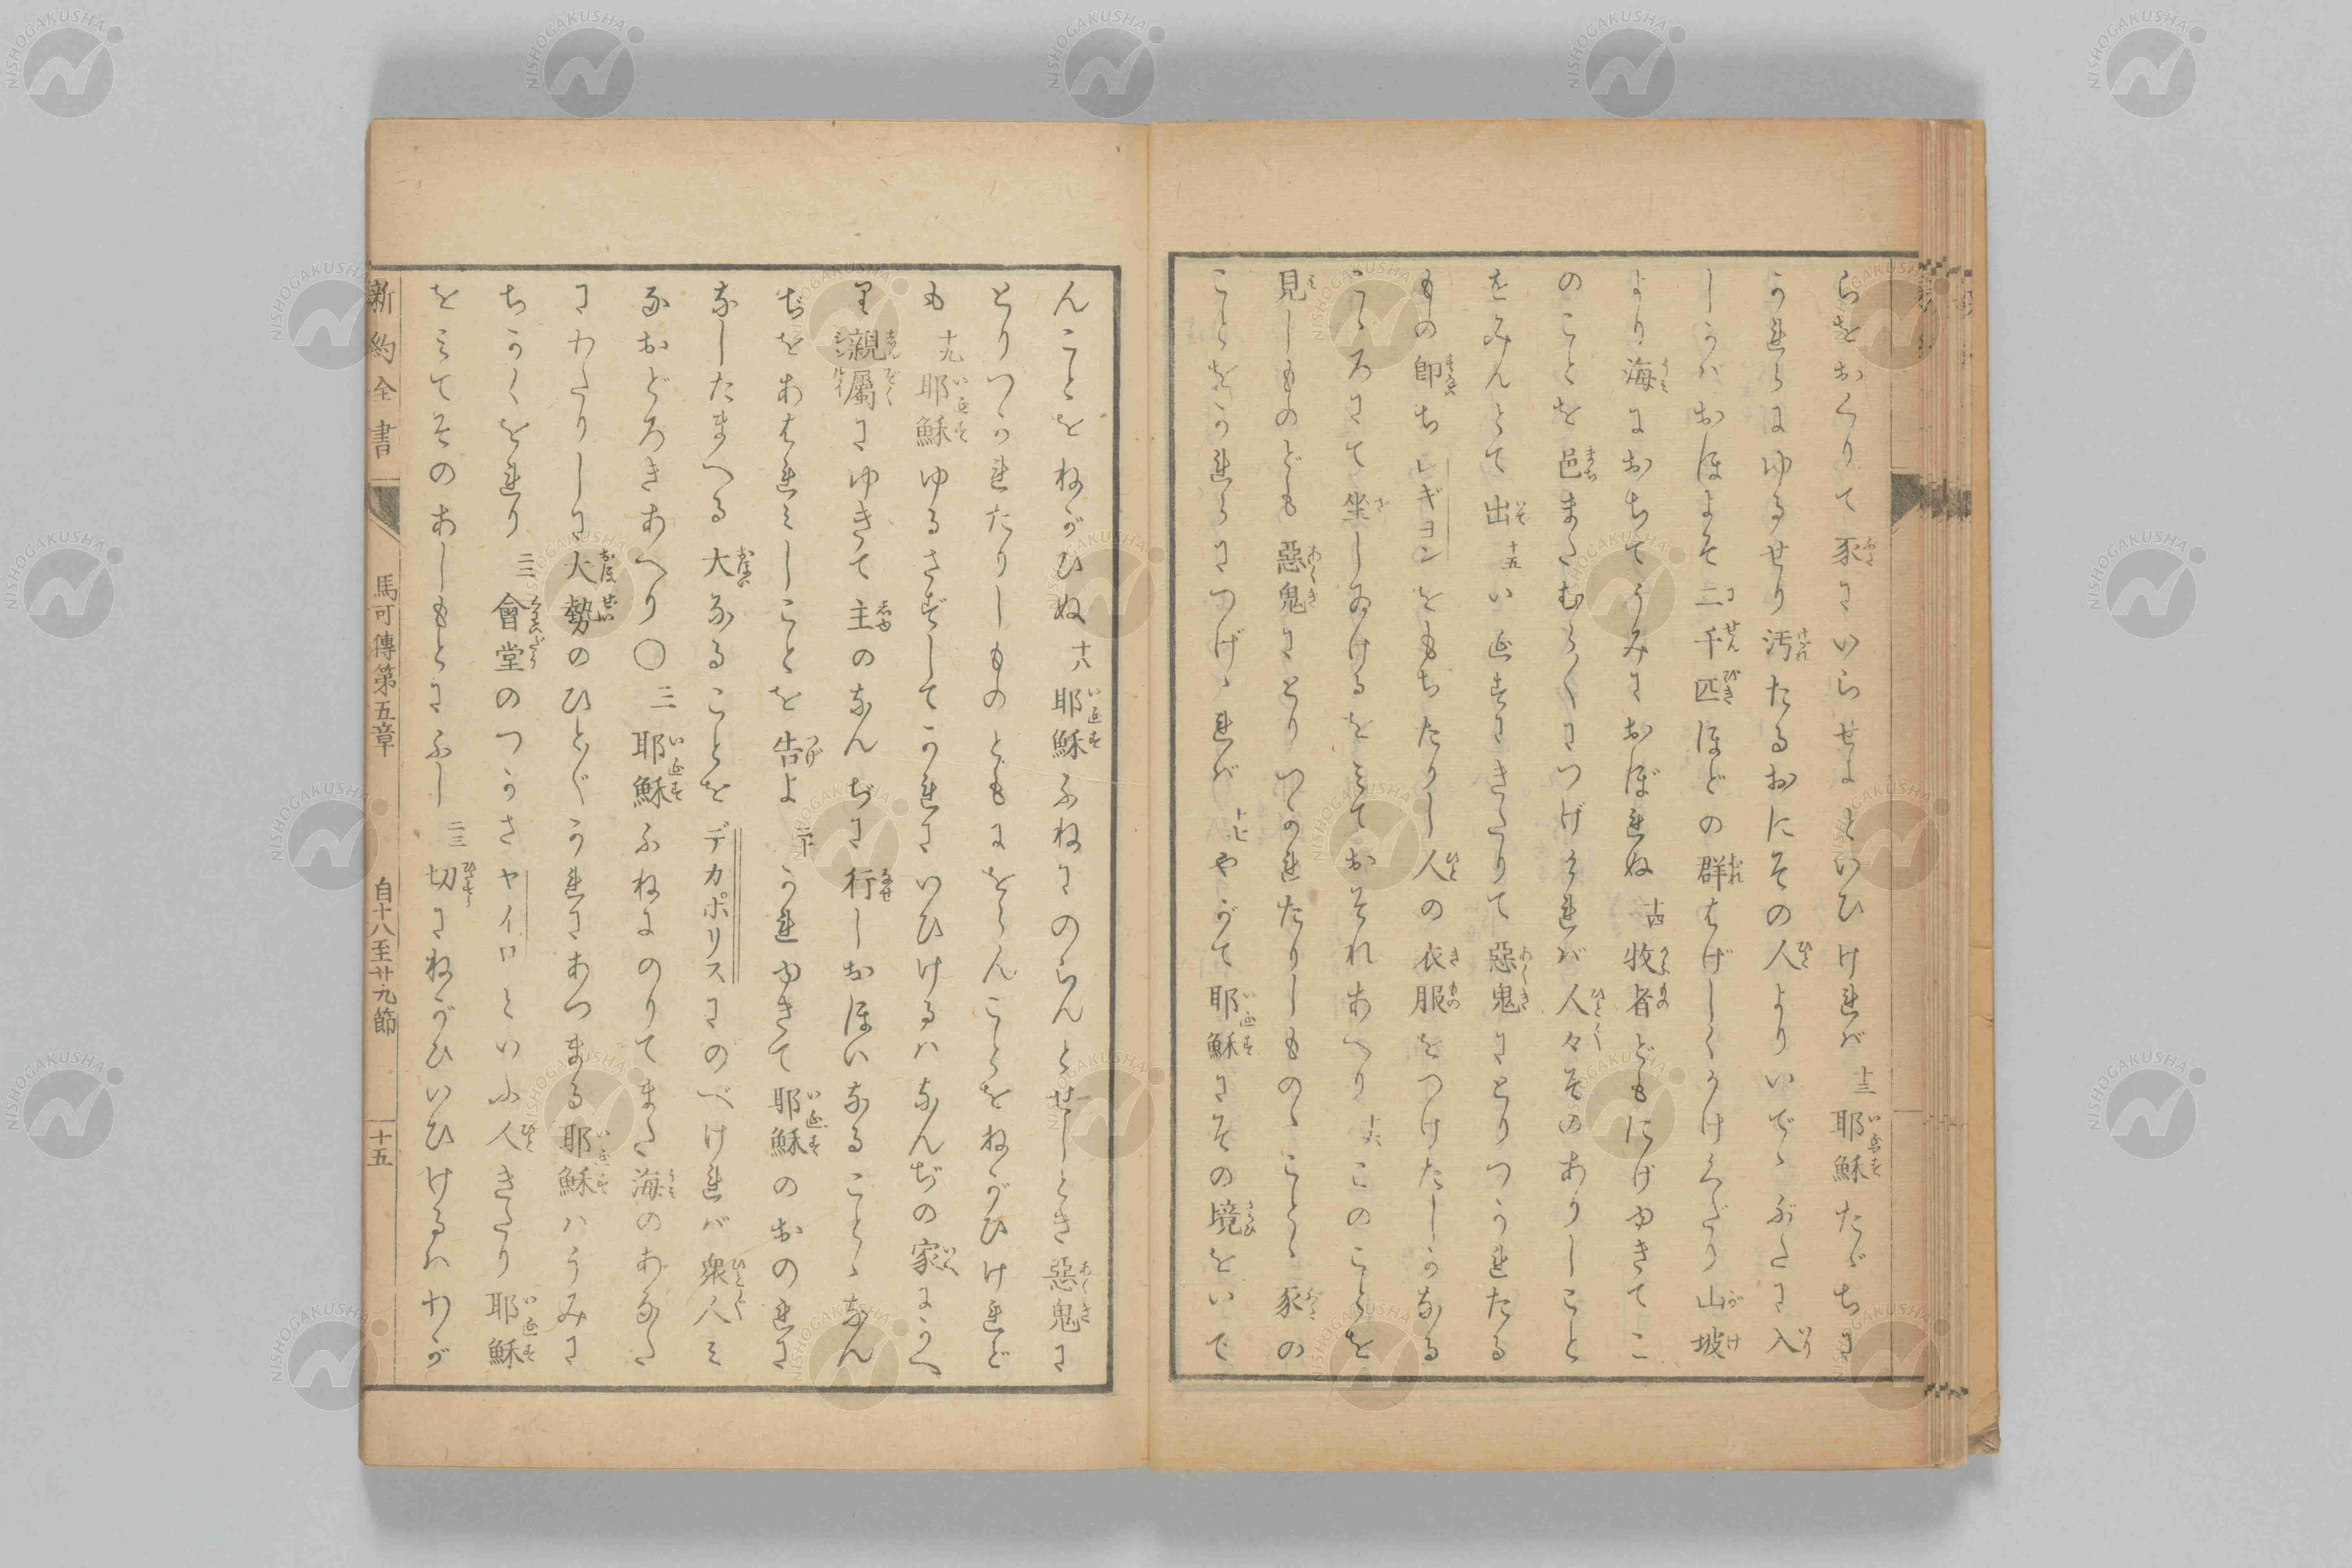 らをおくりて豕にいらせよといひければ十三耶穌たゞちに
かれらにゆるせり汚たるおにその人よりいでゝぶたに入
しかバおほよそ二千匹ほどの群はげしくかけくだり山坡
より海におちてうみにおぼれぬ十四牧者どもにげゆきてこ
のことを邑またむら〳〵につげけれバ人々そのありしこと
をみんとて出十五いゑすにきたりて惡鬼にとりつかれたる
もの即ちレギヨンをもちたりし人の衣服をつけたしかなる
こゝろにて坐しゐけるをみておそれあへり十六このことを
見しものども惡鬼にとりつかれたりしものゝことゝ豕の
ことをかれらにつげゝれバ十七やがて耶穌にその境をいで
んことをねがひぬ十八耶穌ふねにのらんとせしとき惡鬼に
とりつかれたりしものともにをらんことをねがひけれど
も十九耶穌ゆるさずしてかれにいひけるハなんぢの家にかへ
り親屬にゆきて主のなんぢに行しおほいなることゝなん
ぢをあはれみしことを告よ二十かれゆきて耶穌のおのれに
なしたまへる大なることをデカポリスにのべけれバ衆人み
なおどろきあへり〇二一耶穌ふねにのりてまた海のあなた
にわたりしに大勢のひと〴〵かれにあつまる耶穌ハうみに
ちかくをれり二二會堂のつかさヤイロといふ人きたり耶穌
をみてそのあしもとにふし二三切にねがひいひけるハわが
新約全書 馬可傳第五章 自十八至廿九節 十五